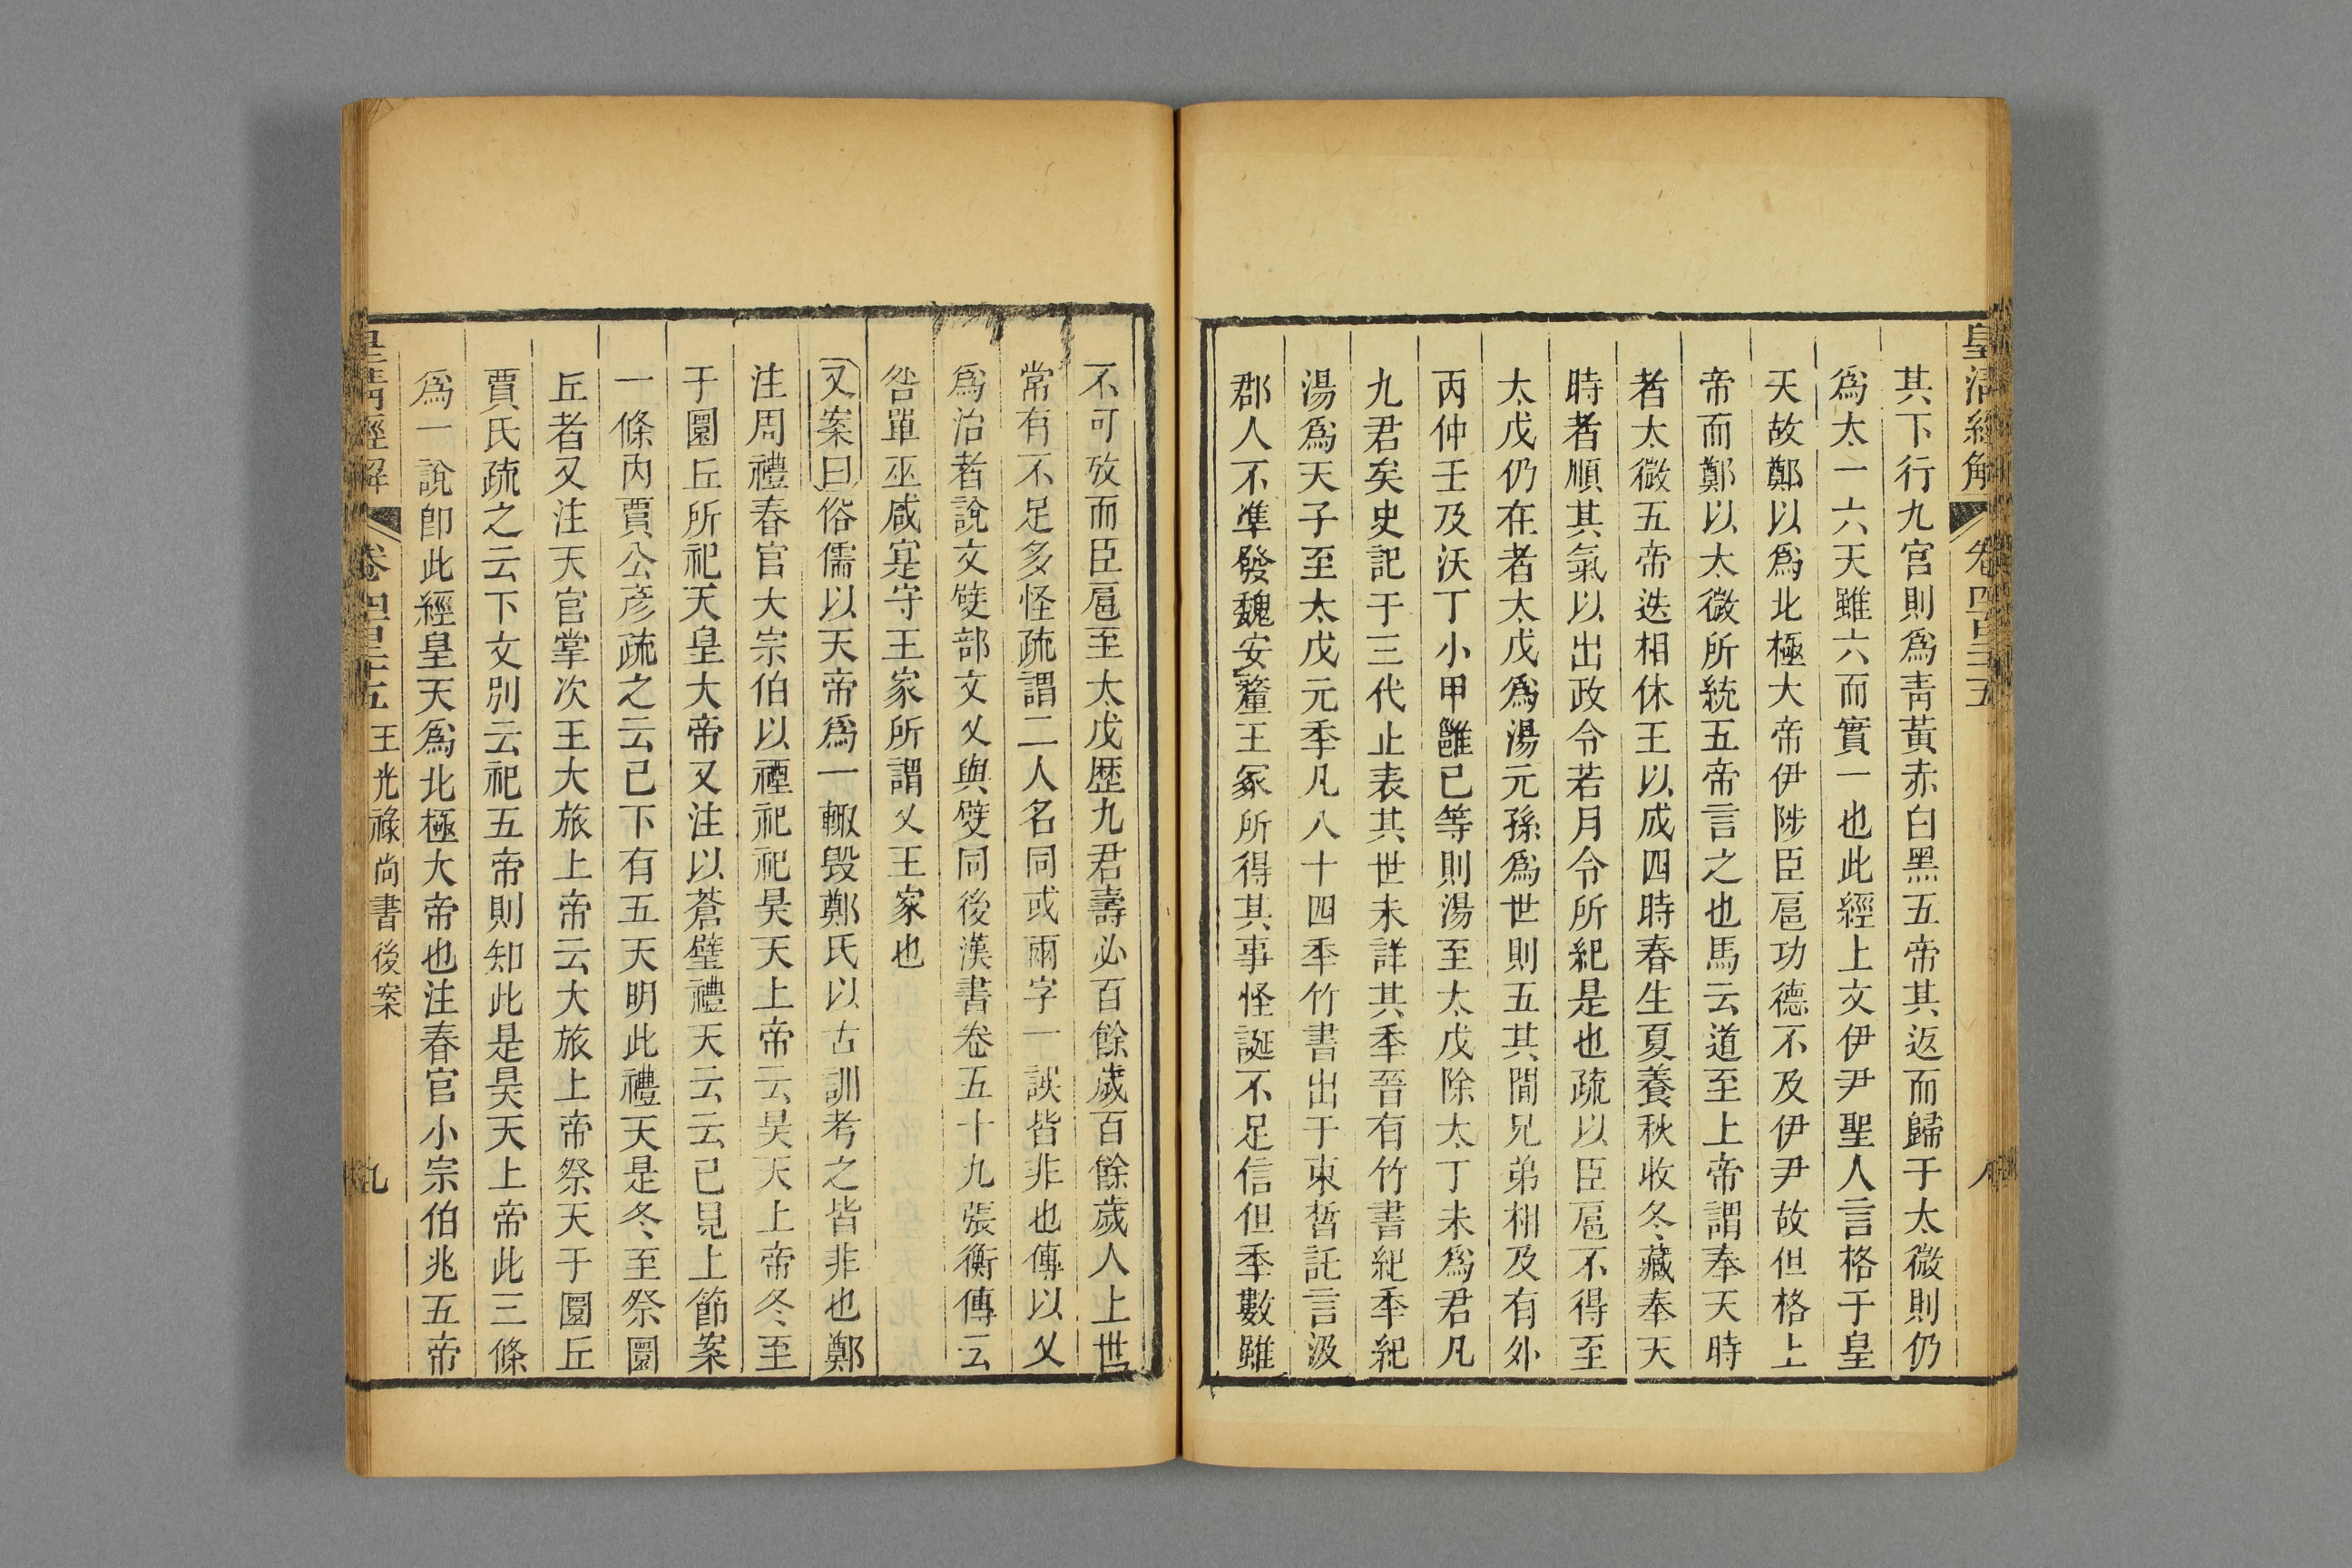 皇清經解 卷四百二十五 八
其下行九宮則爲靑黃赤白黑五帝其返而歸于太微則仍
爲太一六天雖六而實一也此經上文伊尹聖人言格于皇
天故鄭以爲北極大帝伊陟臣扈功德不及伊尹故但格上
帝而鄭以太微所統五帝言之也馬云道至上帝謂奉天時
者太微五帝迭相休王以成四時春生夏養秋收冬藏奉天
時者順其氣以出政令若月令所紀是也疏以臣扈不得至
太戊仍在者太戊爲湯元孫爲世則五其間兄弟相及有外
丙仲壬及沃丁小甲雝已等則湯至太戊除太丁未爲君凡
九君矣史記于三代止表其世未詳其秊晉有竹書紀秊紀
湯爲天子至太戊元秊凡八十四秊竹書出于束晳託言汲
郡人不準發魏安釐王冢所得其事怪誕不足信但秊數雖
不可攷而臣扈至太戊歴九君壽必百餘歲百餘歲人上世
常有不足多怪疏謂二人名同或兩字一誤皆非也傳以乂
爲治者說文辟部文乂與嬖同後漢書卷五十九張衡傳云
咎單巫咸寔守王家所謂乂王家也
又案曰俗儒以天帝爲一輙毁鄭氏以古訓考之皆非也鄭
注周禮春官大宗伯以禋祀祀昊天上帝云昊天上帝冬至
于圜丘所祀天皇大帝又注以蒼璧禮天云云已見上節案
一條内賈公彦疏之云已下有五天明此禮天是冬至祭圜
丘者又注天官掌次王大旅上帝云大旅上帝祭天于圜丘
賈氏疏之云下文別云祀五帝則知此是昊天上帝此三條
爲一說卽此經皇天爲北極大帝也注春官小宗伯兆五帝
皇清經解 卷四百二十五 王光祿尚書後案 九